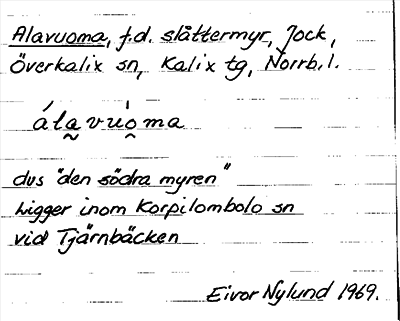 Alavuoma, f.d. slåttermyr, Jock,
Överkalix sn, Kalix tg, Norrb. l.
álavuóma
dvs "den södra myren"
Ligger inom Korpilombolo sn
vid Tjärnbäcken
Eivor Nylund 1969.